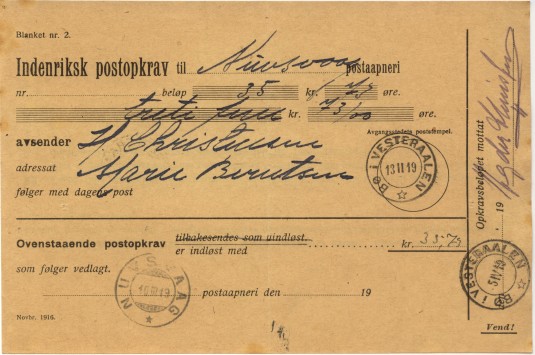 Blanket nr. 2.
Indenriksk postopkrav til Nuvsvaag postaapneri
nr. beløp 35 kr. 73 øre.
treti fem kr. 73/00 øre.
Avgangsstedets poststempel.
avsender H Christensen
adressat Marie Berntsen
følger med dagens post
BØ I VESTERAALEN
13 II 19
Ovenstaaende postopkrav tilbakesendes som uindløst.
er indløst med kr. 35,73
som følger vedlagt.
NUVSVAAG
19
postaapneri den 19
Novbr. 1916.
Opkravsbeløpet mottat
19
BØ I VESTERAALEN
19
Vend!